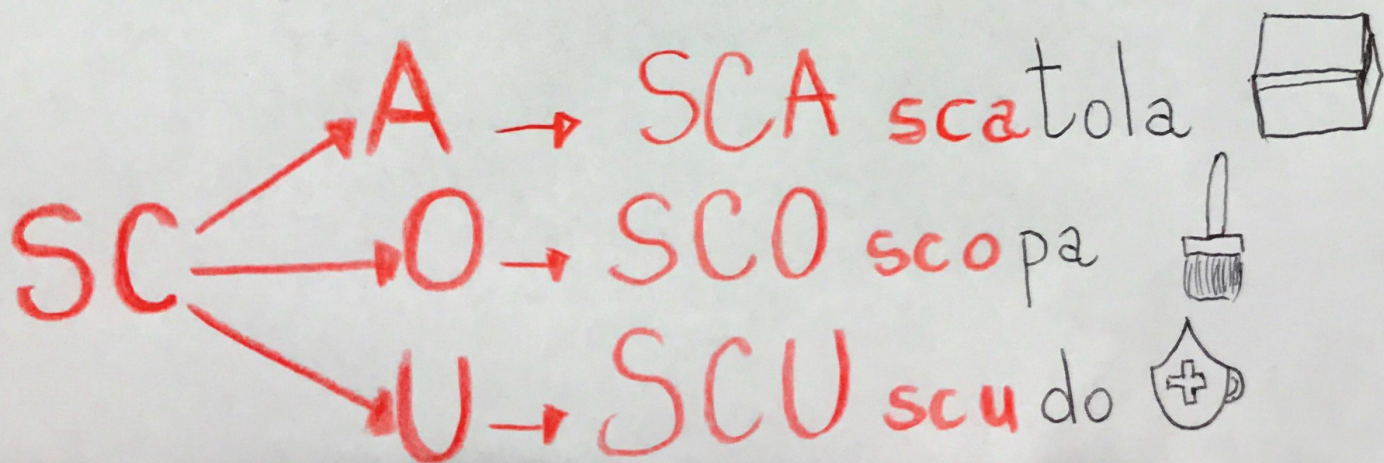 A → SCA scatola
SC O → SCO scopa
U → SCU scudo